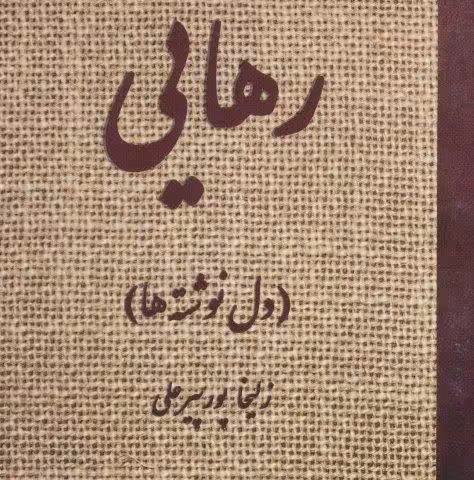 رهایی
(دل نوشته ها)
زلیخا پورپیرعلی